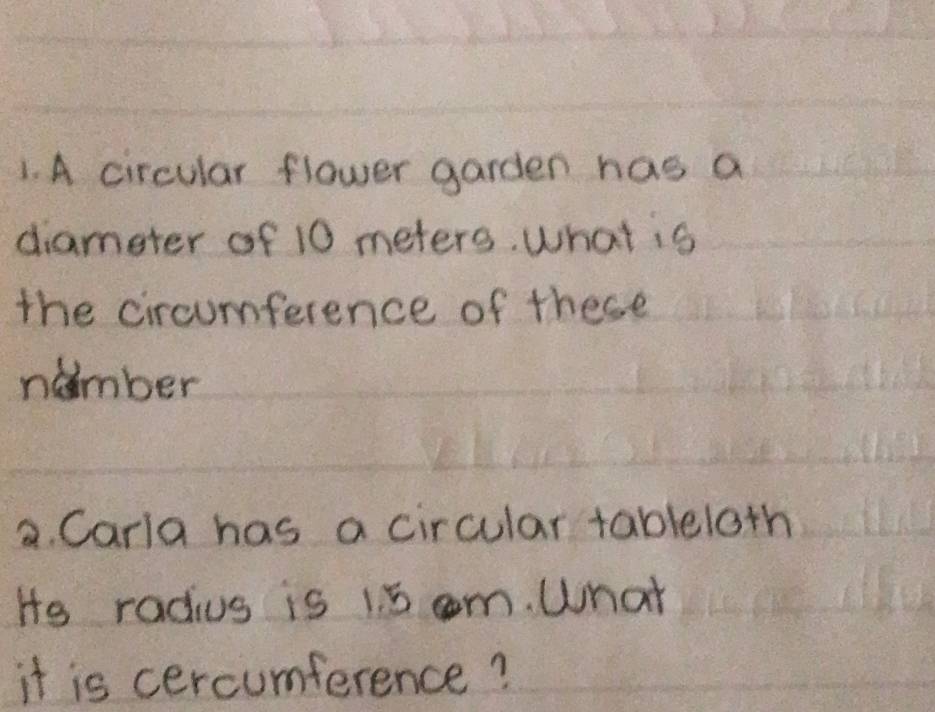 1. A circular flower garden has a
diameter of 10 meters. What is
the circumference of these
number
2. Carla has a circular tableloth
Its radius is 1.5 m. What
it is cercumference?